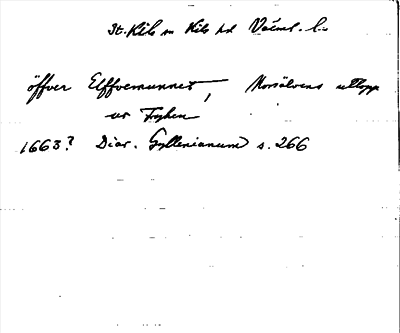 St. Kils sn Kils hd Värml. l.
öffver Elffvemunnet, Norsälvens utlopp
ur Fryken
1663? Diar. Gyllenianum s. 266